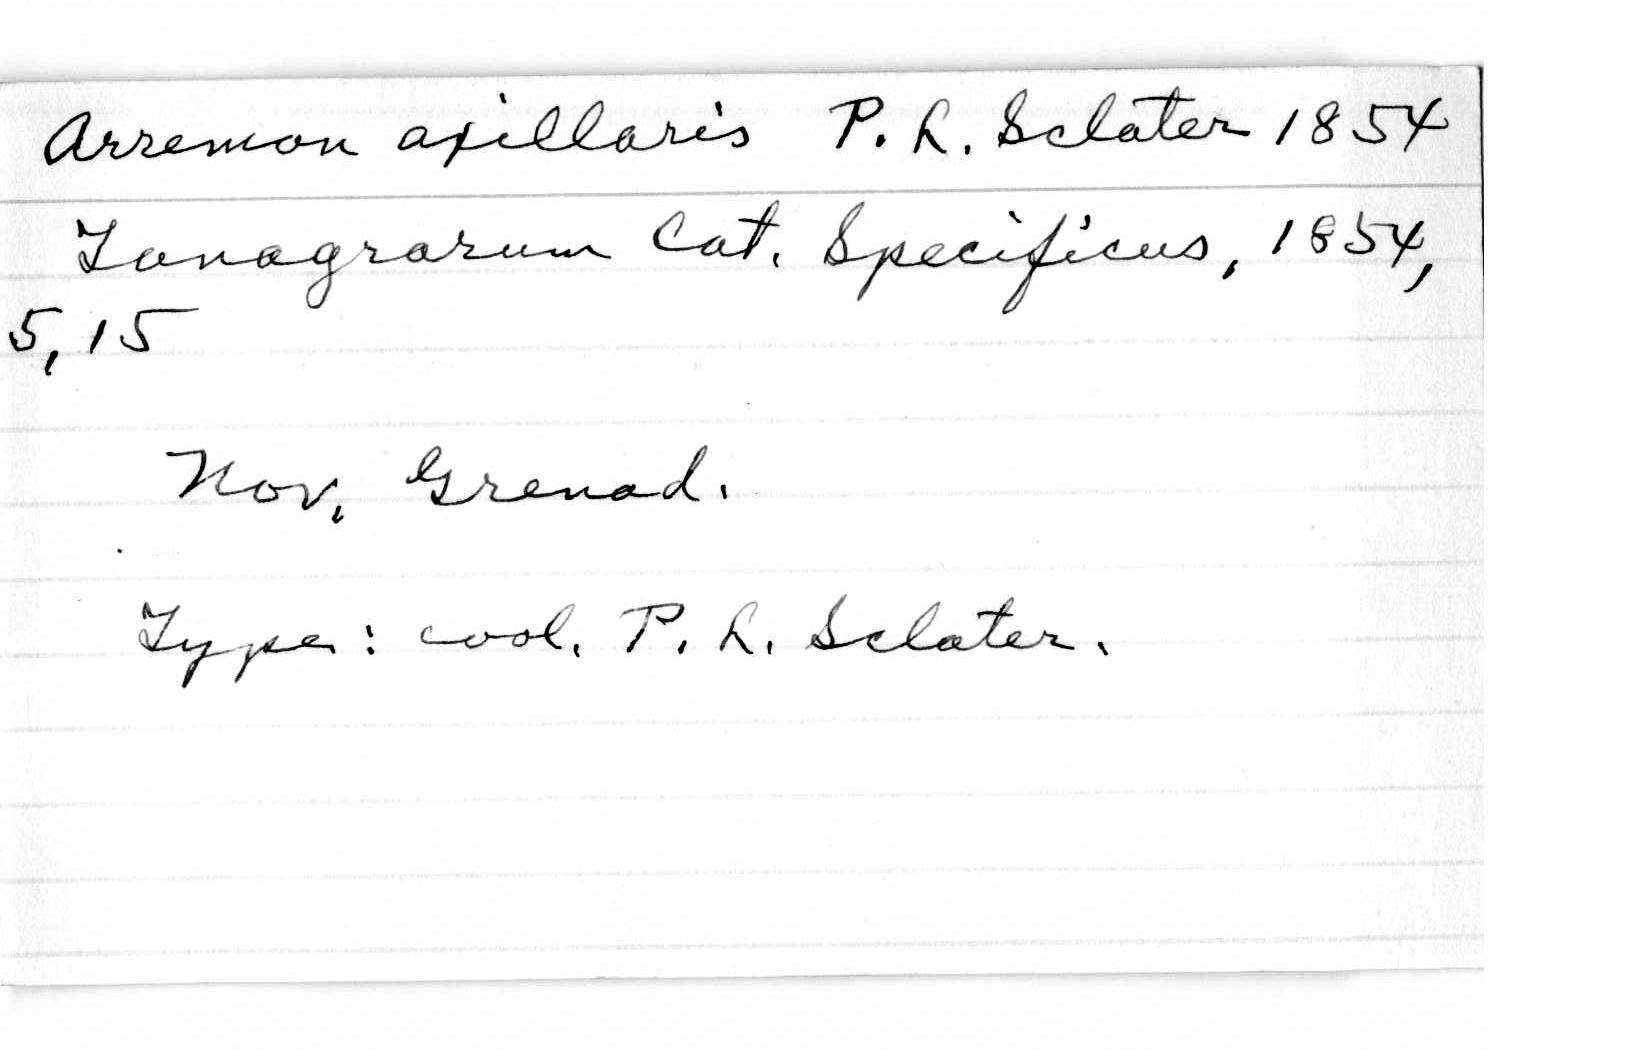 Arremon axillaris P. L. Sclater 1854
Tanagrarum Cat. Specificus, 1854,
5, 15
Nov. Grenad.
Type: coll. P. L. Sclater.